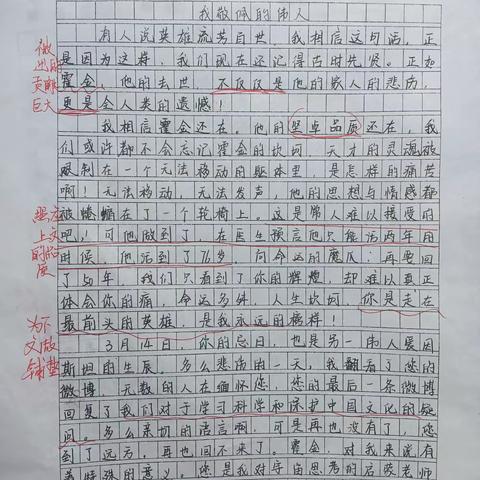 我敬佩的伟人
有人说英雄流芳百世,我相信这句话,正
是因为这样,我们现在还记得古时先贤。正如
霍金,他的去世,不仅仅是他的家人的悲伤,
更是全人类的遗憾!
我相信霍金还在,他的坚卓品质还在,我
们或许都不会忘记霍金的坎坷,天才的灵魂被
限制在一个无法移动的躯体里,是怎样的痛苦
啊!无法移动,无法发声,他的思想与情感都
被蜷缩在了一个轮椅上。这是常人难以接受的
吧!可他做到了,在医生预言他只能活两年的
时候,他活到了76岁,向命运的魔爪
了50年,我们只看到了你的辉煌,却难以真正
体会你的痛,命运多舛,人生坎坷,你是走在
最前头的英雄,是我永远的榜样!
3月14日,你的忌日,也是另一伟人爱因
斯坦的生辰。多么悲伤的一天,我翻看了您的
微博,无数的人在缅怀您,您的最后一条微博
回复了我们对于学习科学和保护中国文化的疑
问。多么亲切的语言啊,可是再也没有了,您
到了远方,再也回不来了。霍金,对我来说有
着特殊的意义,您是我对宇宙思考的启蒙老师
做出的
贡献
巨大
坚卓
上文
的品
质
为下
文做
铺垫